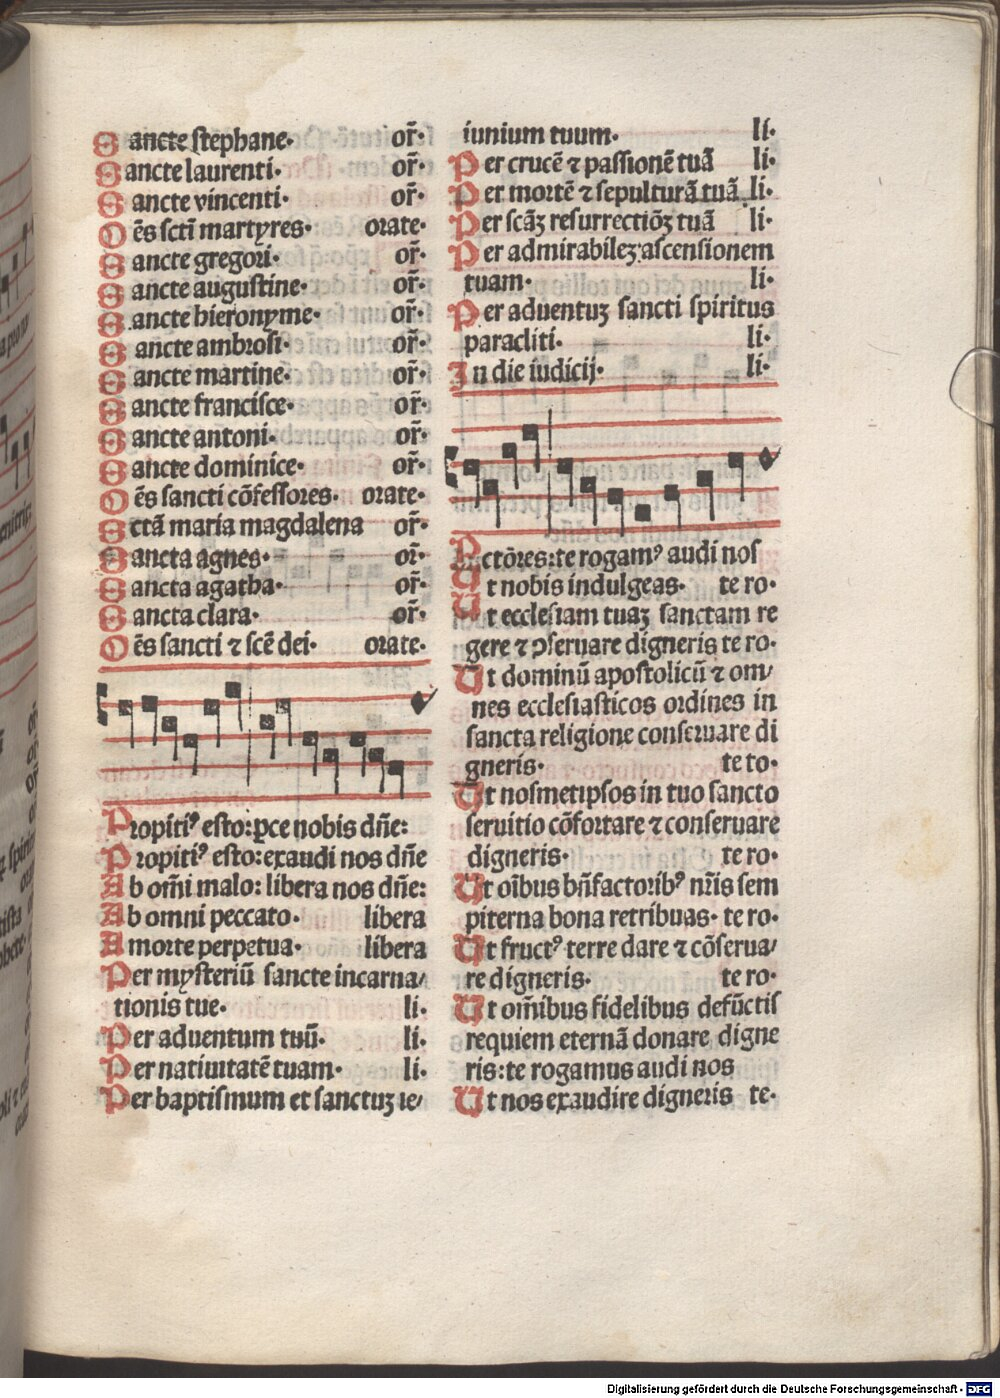 Sancte stephane· or̄·
Sancte laurenti· or̄·
Sancte vincenti· or̄·
Oēs scti martyres· orate·
Sancte gregori· or̄·
Sancte augustine· or̄·
Sancte hieronyme· or̄·
Sancte ambrosi· or̄·
Sancte martine· or̄·
Sancte francisce· or̄·
Sancte antoni· or̄·
Sancte dominice· or̄·
Oēs sancti cōfessores· orate·
Sctā maria magdalena or̄·
Sancta agnes· or̄·
Sancta agatha· or̄·
Sancta clara· or̄·
Oēs sancti ⁊ scē dei· orate·
Propitiꝰ esto: ꝑce nobis dn̄e:
Propitiꝰ esto: exaudi nos dn̄e
Ab om̄i malo: libera nos dn̄e:
Ab omni peccato· libera
A morte perpetua· libera
Per mysteriū sancte incarna/
tionis tue· li·
Per aduentum tuū· li·
Per natiuitatē tuam· li·
Per baptismum et sanctuꝫ ie/
iunium tuum· li·
Per crucē ⁊ passionē tuā li·
Per mortē ⁊ sepulturā tuā li·
Per scāꝫ resurrectiōꝫ tuā li·
Per admirabileꝫ ascensionem
tuam· li·
Per aduentuꝫ sancti spiritus
paracliti· li·
In die iudicij· li·
Pctōres: te rogamꝰ audi nos
Ut nobis indulgeas· te ro·
Ut ecclesiam tuaꝫ sanctam re
gere ⁊ ꝯseruare digneris te ro·
Ut dominū apostolicū ⁊ om/
nes ecclesiasticos ordines in
sancta religione conseruare di
gneris· te to·
Ut nosmetipsos in tuo sancto
seruitio cōfortare ⁊ conseruare
digneris· te ro·
Ut oībus bn̄factoribꝰ nr̄is sem
piterna bona retribuas· te ro·
Ut fructꝰ terre dare ⁊ cōserua/
re digneris· te ro·
Ut om̄ibus fidelibus defūctis
requiem eternā donare digne
ris: te rogamus audi nos
Ut nos exaudire digneris te·
Digitalisierung gefördert durch die Deutsche Forschungsgemeinschaft - DFG